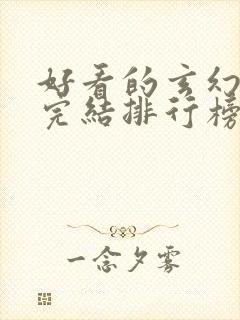 好看的玄幻
完结排行榜
一念夕雾